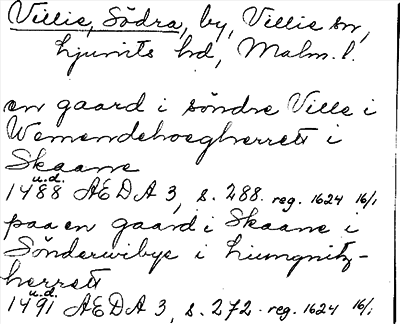 Villie, Södra, by, Villie sn,
Ljunits hd, Malm. l.
en gaard i søndre Ville i
Wemendehoegherrett i
Skaane
u.d.
1488 AEDA 3, s. 288. reg. 1624 16/1
paa en gaard i Skaane i
Sønderwibye i Liumgnitz-
herrett
u.d.
1491 AEDA 3, s. 272. reg. 1624 16/1